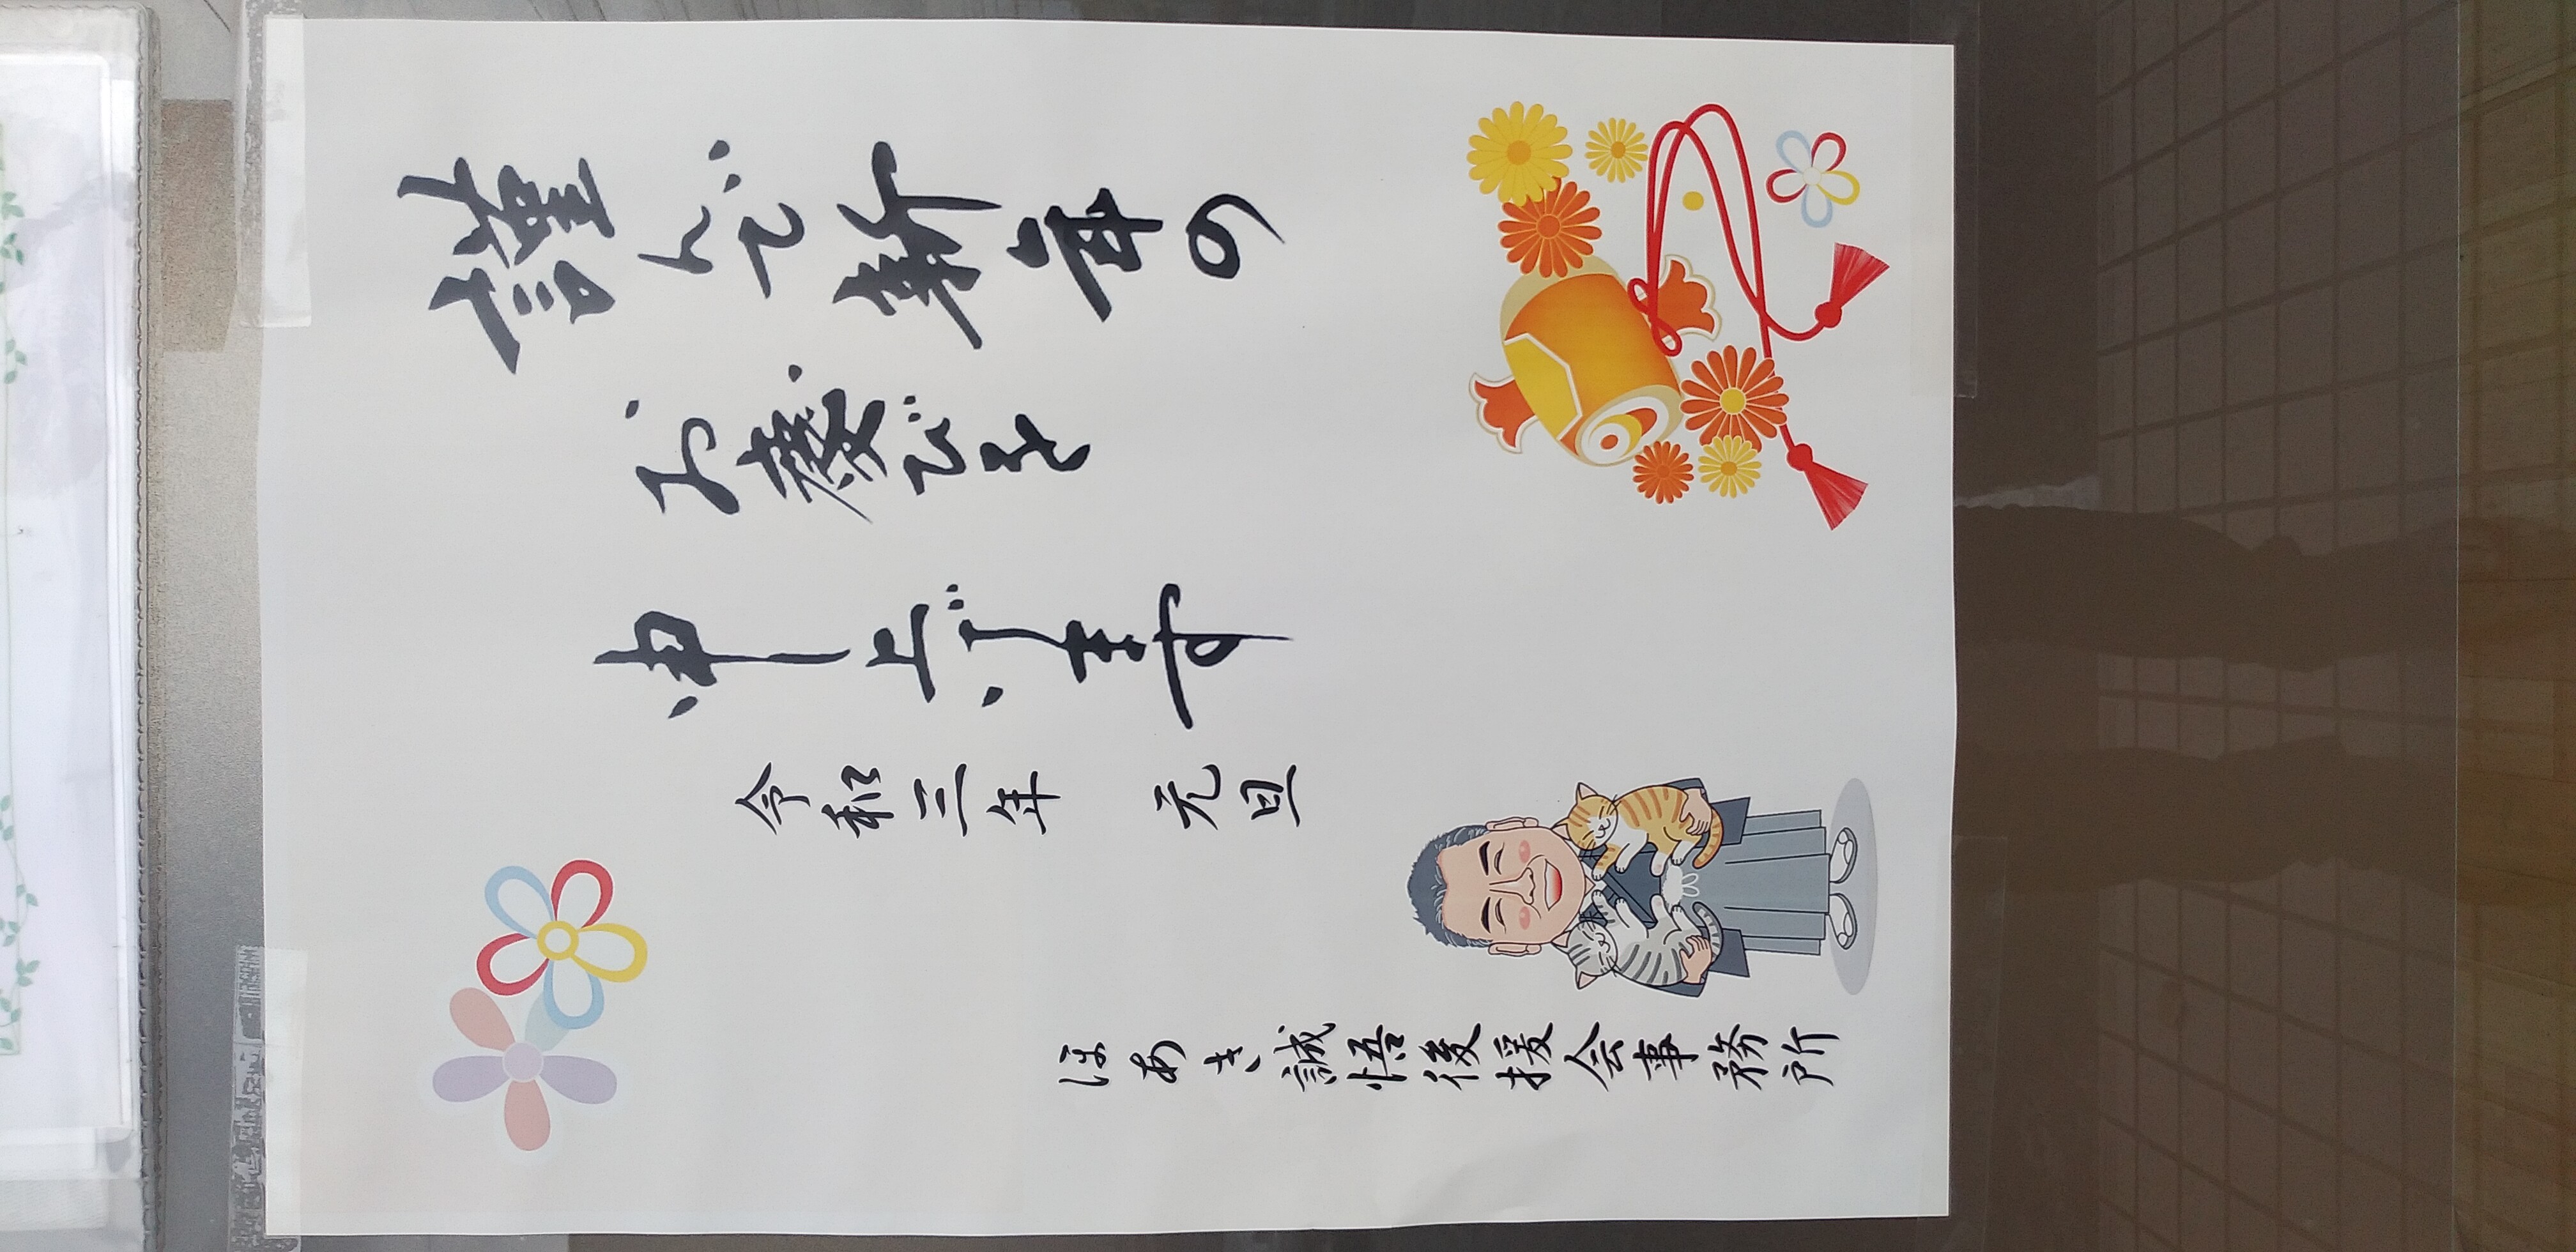 謹んで新年の
お慶びを
申し上げます
令和三年　元旦
ほあき誠悟後援会事務所